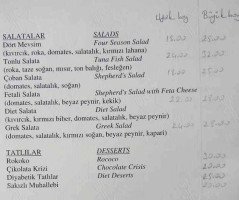 SALATALAR SALADS
Dört Mevsim Four Season Salad
(kıvırcık, roka, domates, salatalık, kırmızı lahana)
Tonlu Salata Tuna Fish Salad
(roka, taze soğan, mısır, ton balığı, fesleğen)
Çoban Salata Shepherd's Salad
(domates, salatalık, soğan)
Fetali Salata Shepherd's Salad with Feta Cheese
(domates, salatalık, beyaz peynir, kekik)
Diet Salata Diet Salad
(kıvırcık, kırmızı biber, domates, salatalık, beyaz peynir)
Grek Salata Greek Salad
(domates, salatalık, kırmızı soğan, beyaz peynir, kapari)
TATLILAR DESSERTS
Rokoko Rococo
Çikolata Krizi Chocolate Crisis
Diyabetik Tatlılar Diet Deserts
Sakızlı Muhallebi